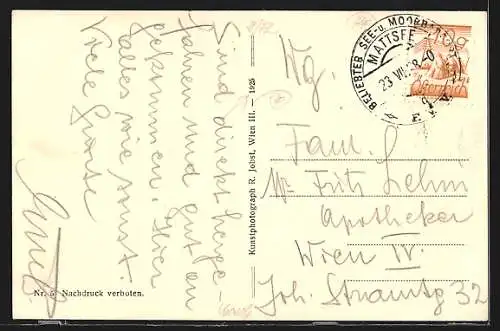 Sind direkt herge-
fahren und gut an
gekommen. Hier
alles wie sonst.
Viele Grüsse
Nr. 5 Nachdruck verboten.
Kunstphotograph R. Jobst, Wien III. — 1925
BELIEBTER SEE- u. MOORBADEORT
MATTSEE
23 VII 28
10g
Österreich
Wg.
Fam.
Fritz Lehm
Apotheker
Wien IV.
Joh. Straussg 32